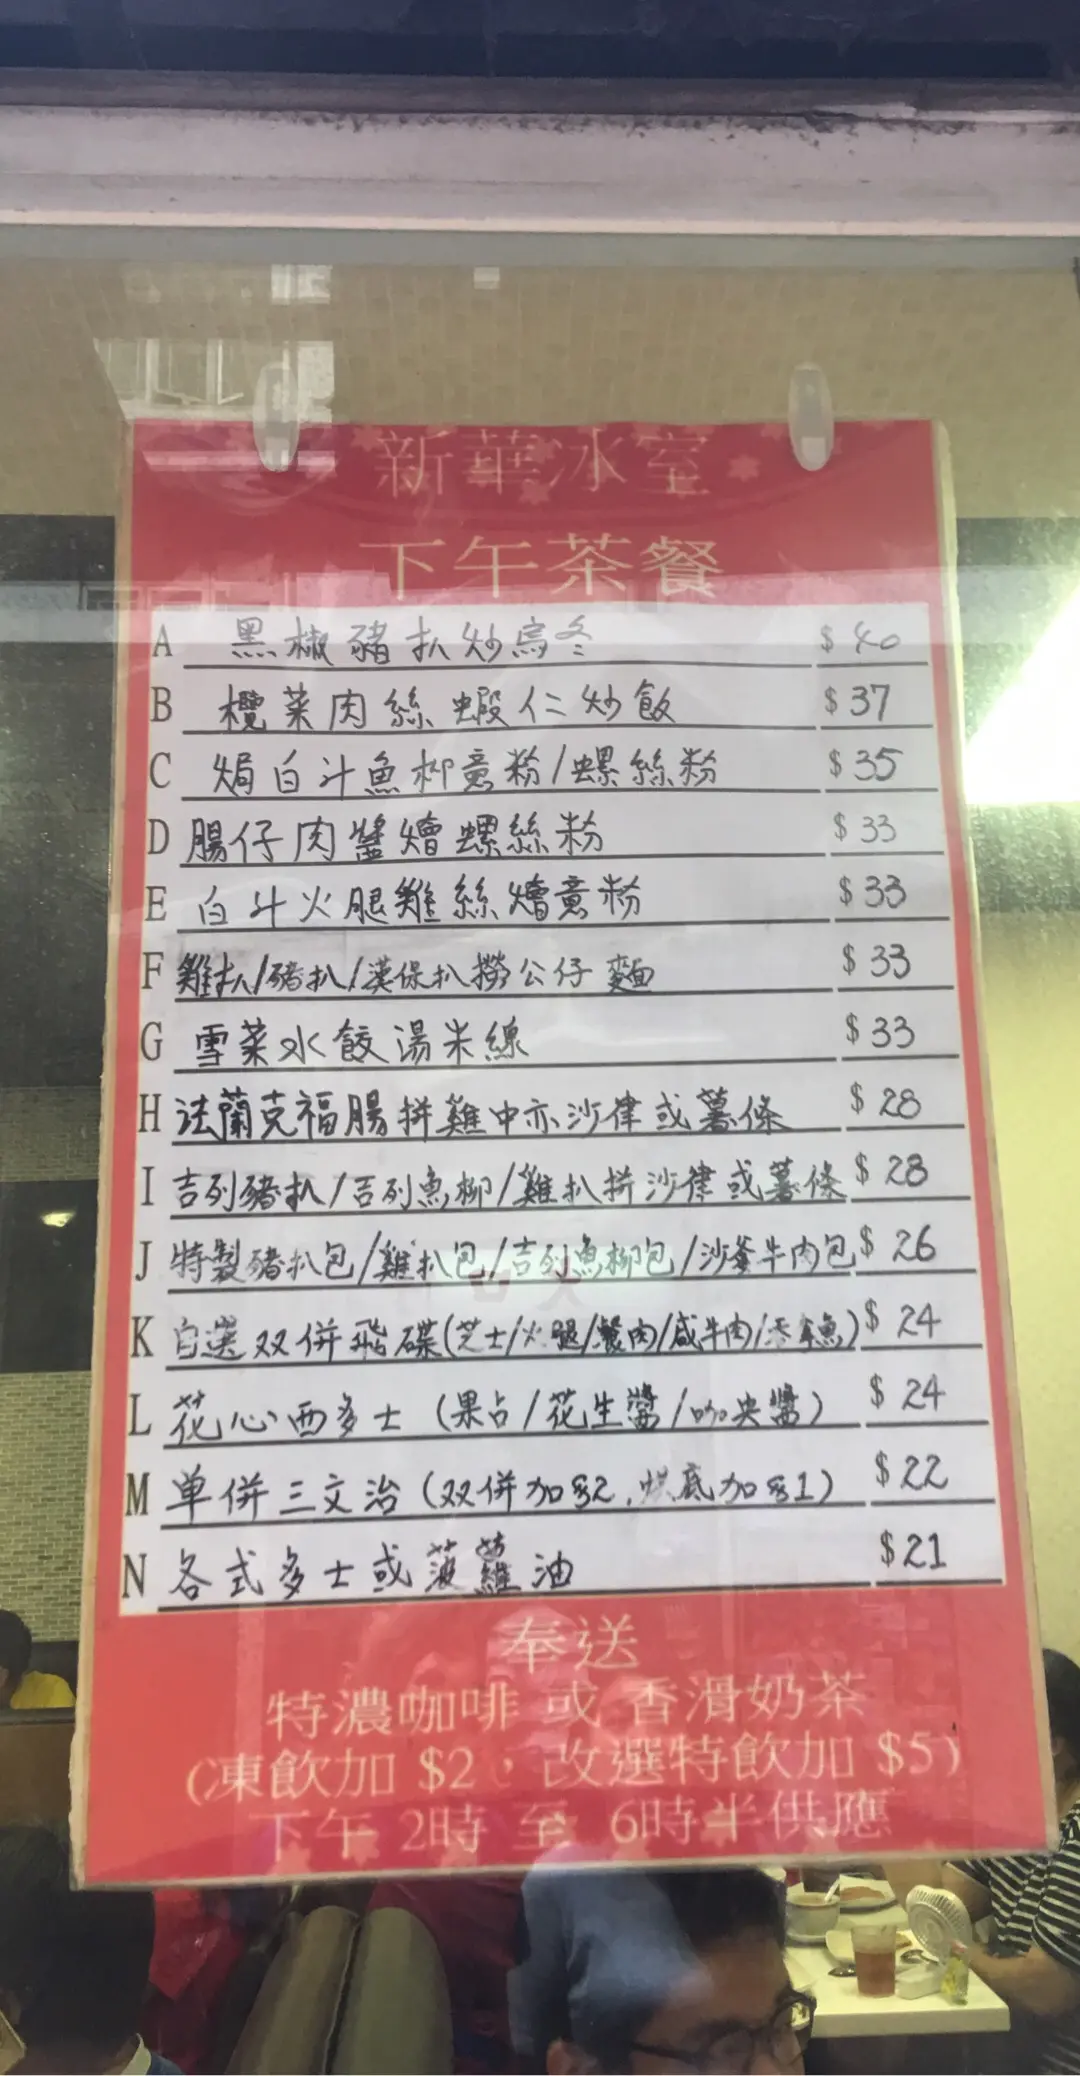 新華冰室
下午茶餐
A 黑椒豬扒炒烏冬 $40
B 欖菜肉絲蝦仁炒飯 $37
C 焗白汁魚柳意粉/螺絲粉 $35
D 腸仔肉醬燴螺絲粉 $33
E 白汁火腿雞絲燴意粉 $33
F 雞扒/豬扒/漢保扒撈公仔麵 $33
G 雪菜水餃湯米線 $33
H 法蘭克福腸拼雞中亦沙律或薯條 $28
I 吉列豬扒/吉列魚柳/雞扒拼沙律或薯條 $28
J 特製豬扒包/雞扒包/吉列魚柳包/沙爹牛肉包 $26
K 自選双併飛碟(芝士/火腿/餐肉/咸牛肉/吞拿魚) $24
L 花心西多士 (果占/花生醬/咖央醬) $24
M 单併三文治 (双併加$2,烘底加$1) $22
N 各式多士或菠蘿油 $21
奉送
特濃咖啡 或 香滑奶茶
(凍飲加 $2，改選特飲加 $5)
下午 2時 至 6時半供應